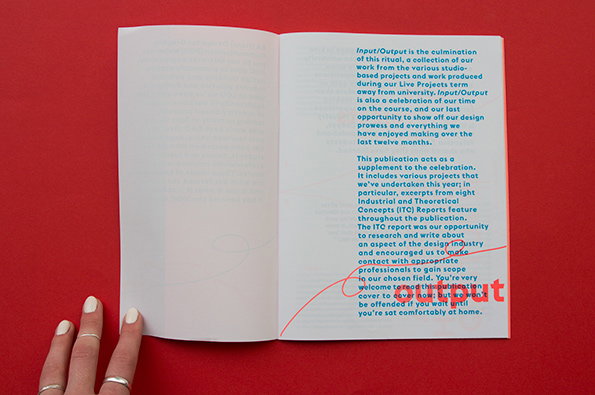 Input/Output is the culmination
of this ritual, a collection of our
work from the various studio-
based projects and work produced
during our Live Projects term
away from university. Input/Output
is also a celebration of our time
on the course, and our last
opportunity to show off our design
prowess and everything we
have enjoyed making over the
last twelve months.
This publication acts as a
supplement to the celebration.
It includes various projects that
we've undertaken this year; in
particular, excerpts from eight
Industrial and Theoretical
Concepts (ITC) Reports feature
throughout the publication.
The ITC report was our opportunity
to research and write about
an aspect of the design industry
and encouraged us to make
contact with appropriate
professionals to gain scope
in our chosen field. You're very
welcome to read this publication
cover to cover now, but we won't
be offended if you wait until
you're sat comfortably at home.
output